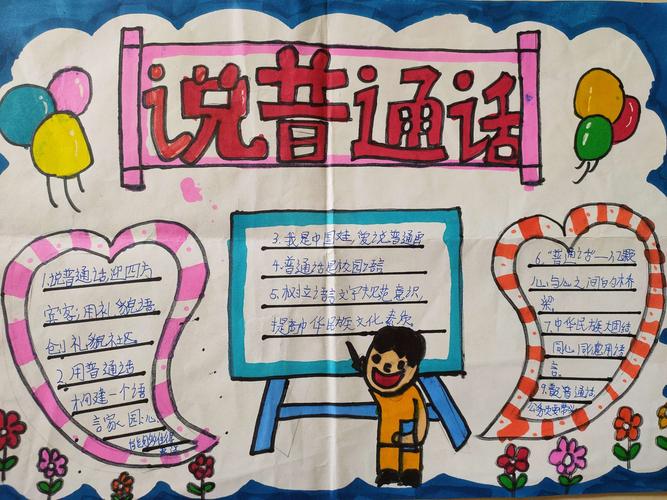 说普通话
1.说普通话,迎四方
宾客;用礼貌语
创礼貌社区
2.用普通话
构建一个语
言家园;心
3.我是中国娃,爱说普通话
4.普通话是校园语言
5.树立语言文字规范意识,
提高中华民族文化素质
6."普通话"一亿颗
心与心之间的桥
梁
7.中华民族大团结
同心同德用语
言
9.普通话,
公务员要带头